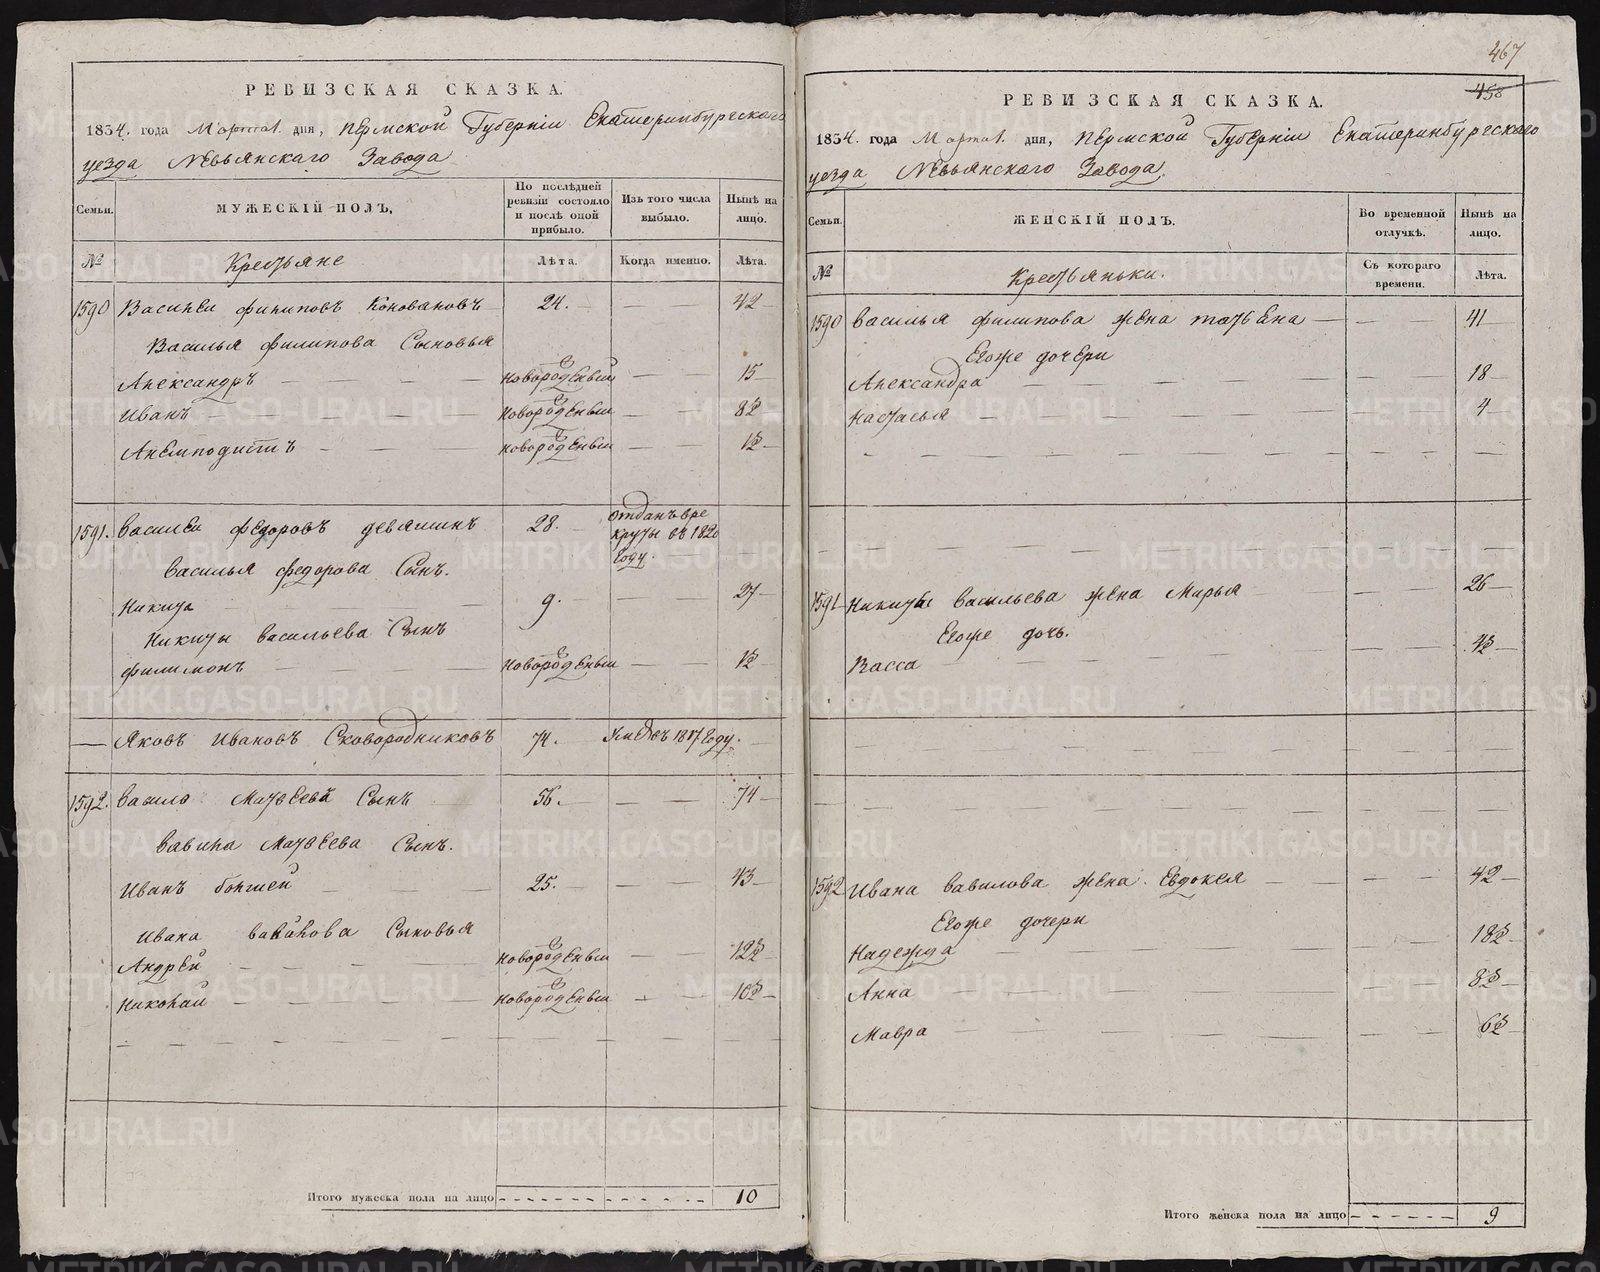 РЕВИЗСКАЯ СКАЗКА.
1834. года Марта 1. дня, Пермской Губерніи Екатеринбургскаго
уезда Невьянскаго Завода
Семьи.
МУЖЕСКІЙ ПОЛЪ,
По послѣдней ревизіи состояло и послѣ оной прибыло.
Изъ того числа выбыло.
Нынѣ на лицо.
№
Крестьяне
Лѣта.
Когда именно.
Лѣта.
1590 Василеи Филиповъ Коноваловъ 24. — — 42
Василья Филипова Сыновья
Александръ — — новорожденыи — — 15
Иванъ — — новорожденыи — — 8½
Анемподистъ — — новорожденыи — — 1½
1591. Василеи Федоровъ Девяшинъ 28. отданъ вре
круты въ 1820
Году.
Василья Федорова Сынъ.
Никита — — 9. — — 27
Никиты Васильева Сынъ
Филимонъ — — новорожденыи — — 1½
— Яковъ Ивановъ Сковородниковъ 74. Умре въ 1817 Году. —
1592. Вавило Матвеевъ Сынъ 56. — — 74
Вавила Матвеева Сынъ.
Иванъ болшеи — — 25. — — 43
Ивана Вавилова Сыновья
Андрей — — новорожденыи — — 12½
Николай — — новорожденыи — — 10½
Итого мужеска пола на лицо 10
467
458
РЕВИЗСКАЯ СКАЗКА.
1834. года Марта 1. дня, Пермской Губерніи Екатеринбургскаго
уезда Невьянскаго Завода.
Семьи.
ЖЕНСКІЙ ПОЛЪ.
Во временной отлучкѣ.
Нынѣ на лицо.
№
Крестьяньки.
Съ котораго времени.
Лѣта.
1590 Василья Филипова жена татьяна — — 41
Егоже дочери
Александра — — 18
Настасья — — 4
1591 Никиты Васильева жена Марья — — 26
Егоже дочь.
Васса — — 4½
1592 Ивана Вавилова жена Евдокея — — 42
Егоже дочери
Надежда — — 18½
Анна — — 8½
Мавра — — 6½
Итого женска пола на лицо 9
METRIKI.GASO-URAL.RU